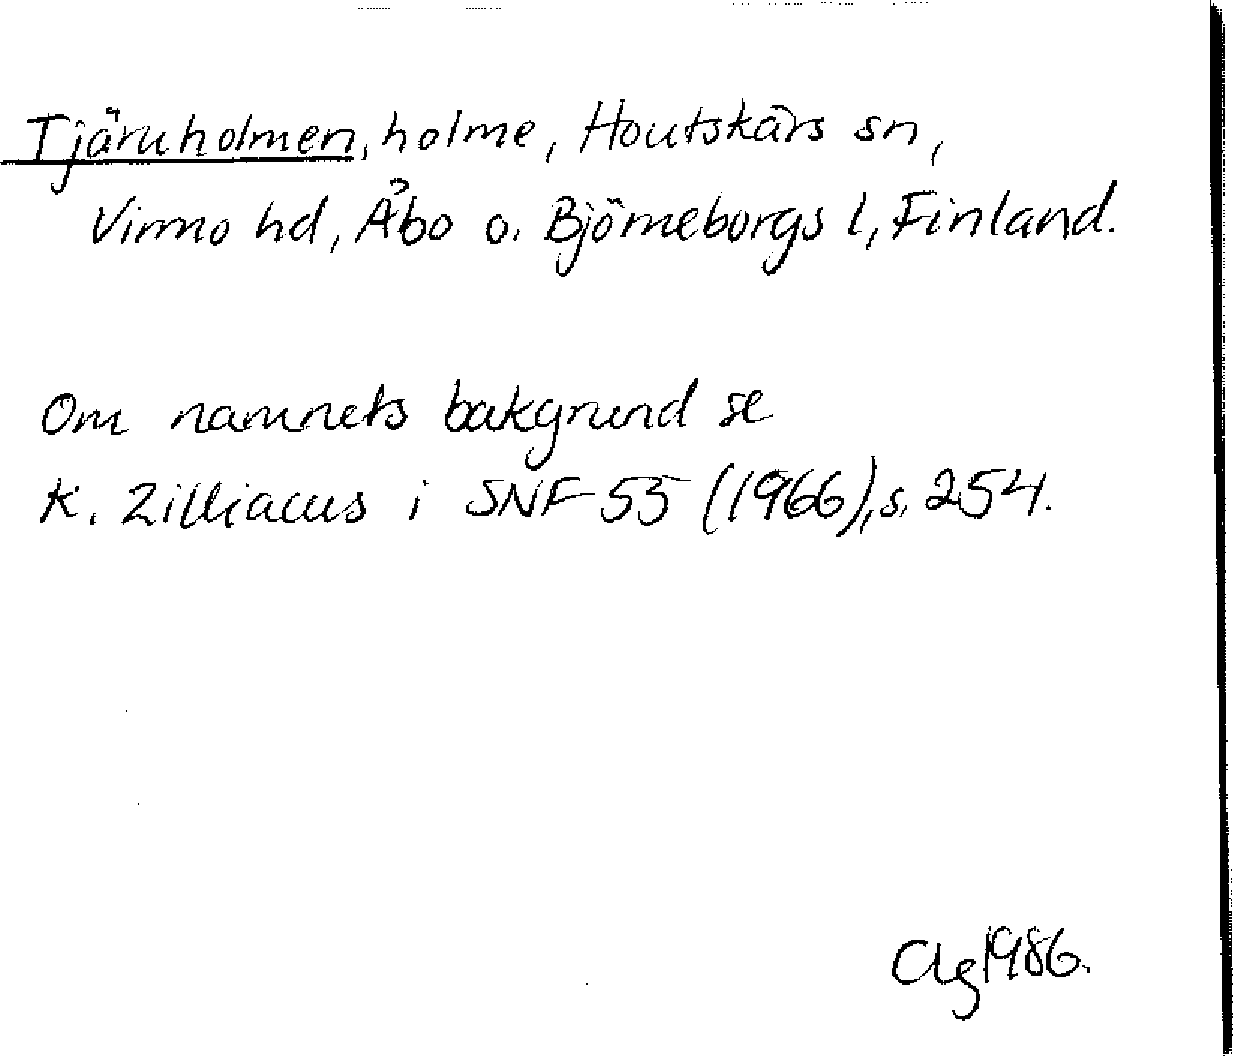 Tjäruholmen, holme, Houtskärs sn,
Virmo hd, Åbo o. Björneborgs l, Finland.
Om namnets bakgrund se
K. Zilliacus i SNF 55 (1966), s. 254.
1986.